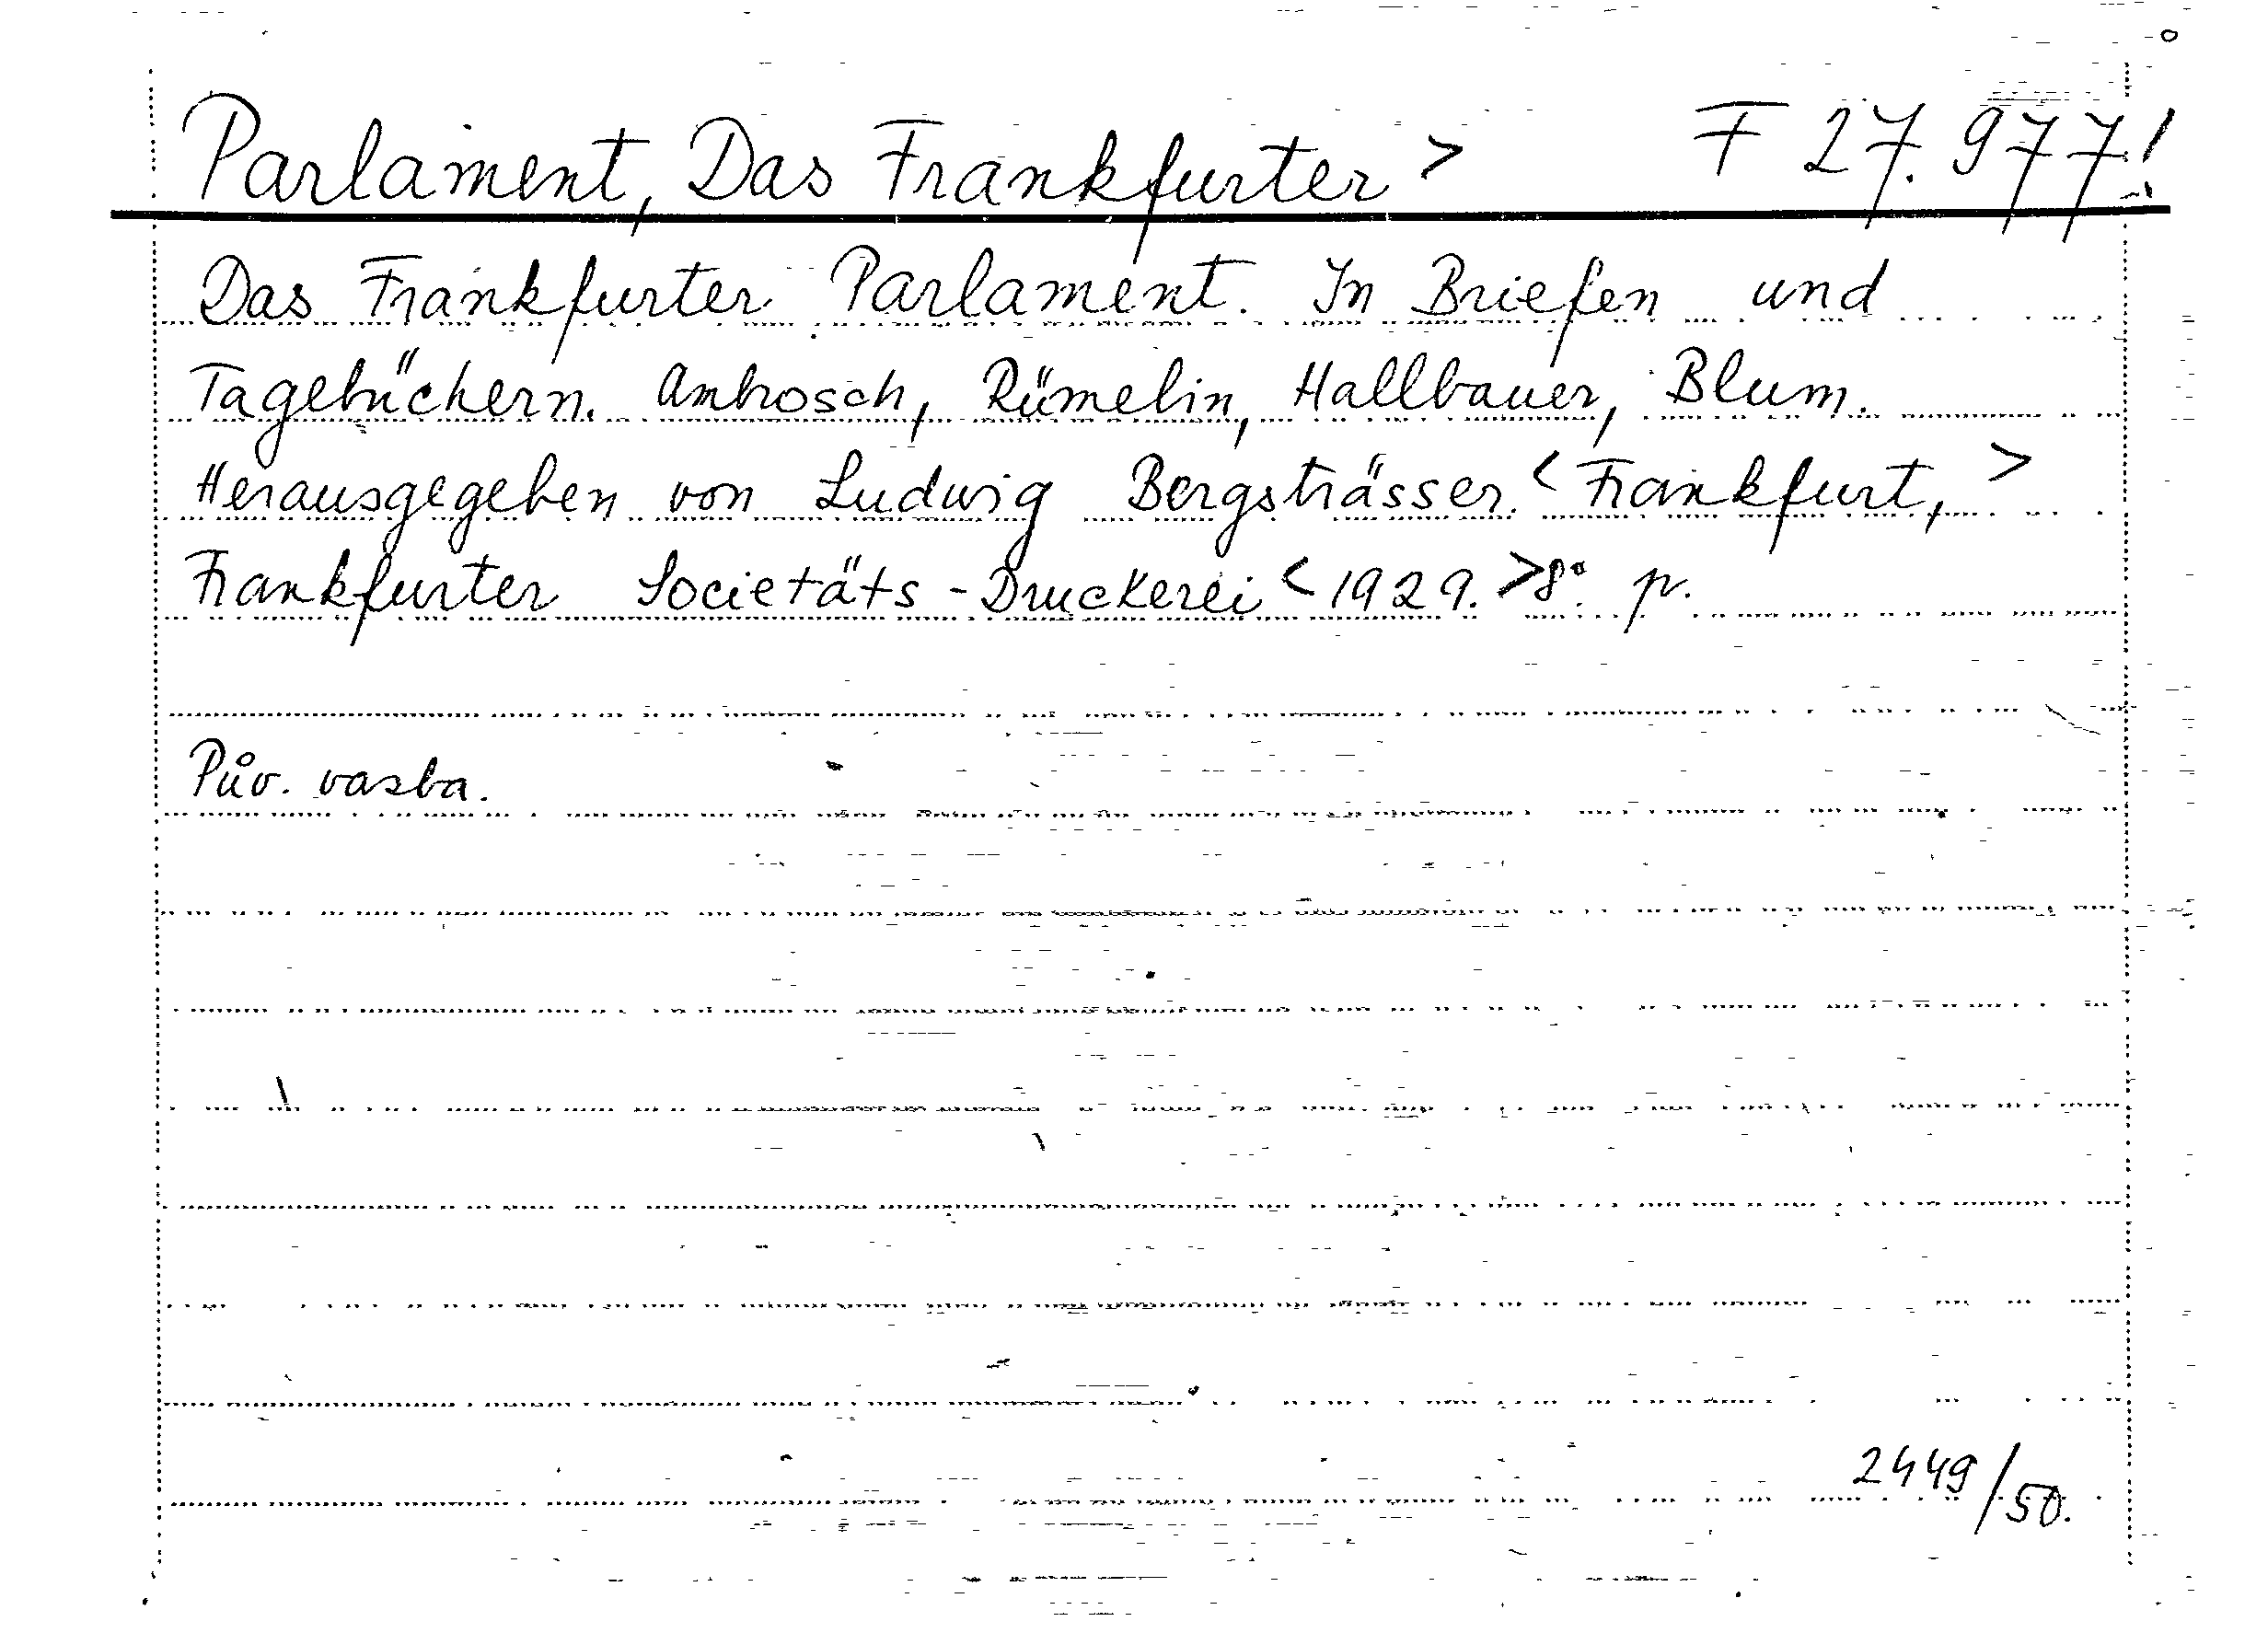 Parlament, Das Frankfurter > F 27.977!
Das Frankfurter Parlament. In Briefen und
Tagebüchern. Ambrosch, Rümelin, Hallbauer, Blum.
Herausgegeben von Ludwig Bergsträsser. < Frankfurt, >
Frankfurter Societäts-Druckerei < 1929. > 8° p.
Pův. vazba.
2449/50.